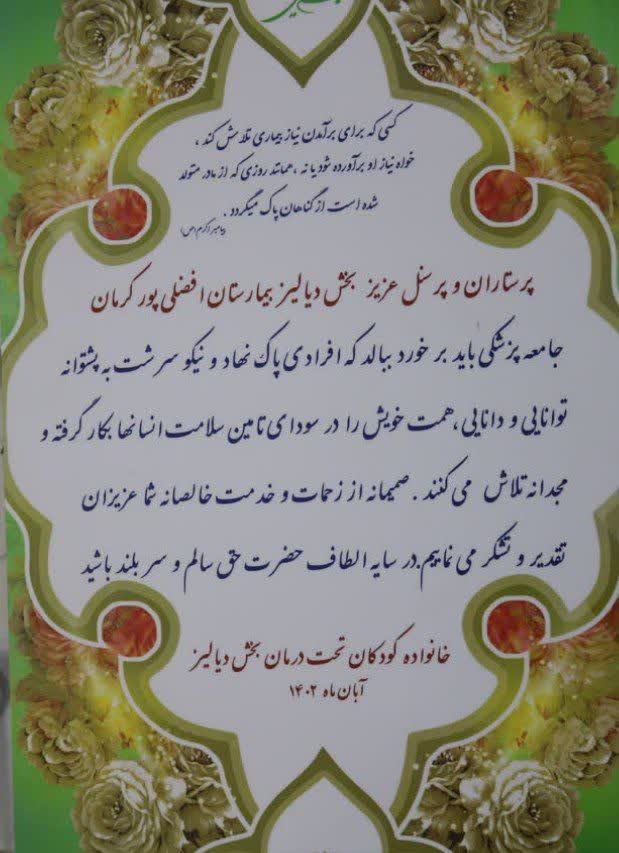 کسی که برای برآمدن نیاز بیماری تلاش کند ،
خواه نیاز او برآورده شود یا نه ، همانند روزی که از مادر متولد
شده است از گناهان پاک میگردد .
پیامبر اکرم (ص)
پرستاران و پرسنل عزیز بخش دیالیز بیمارستان افضلی پور کرمان
جامعه پزشکی باید بر خورد ببالد که افرادی پاک نهاد و نیکو سرشت به پشتوانه
توانایی و دانایی ، همت خویش را در سودای تامین سلامت انسانها بکار گرفته و
مجدانه تلاش می کنند . صمیمانه از زحمات و خدمت خالصانه شما عزیزان
تقدیر و تشکر می نماییم. در سایه الطاف حضرت حق سالم و سر بلند باشید
خانواده کودکان تحت درمان بخش دیالیز
آبان ماه ۱۴۰۲